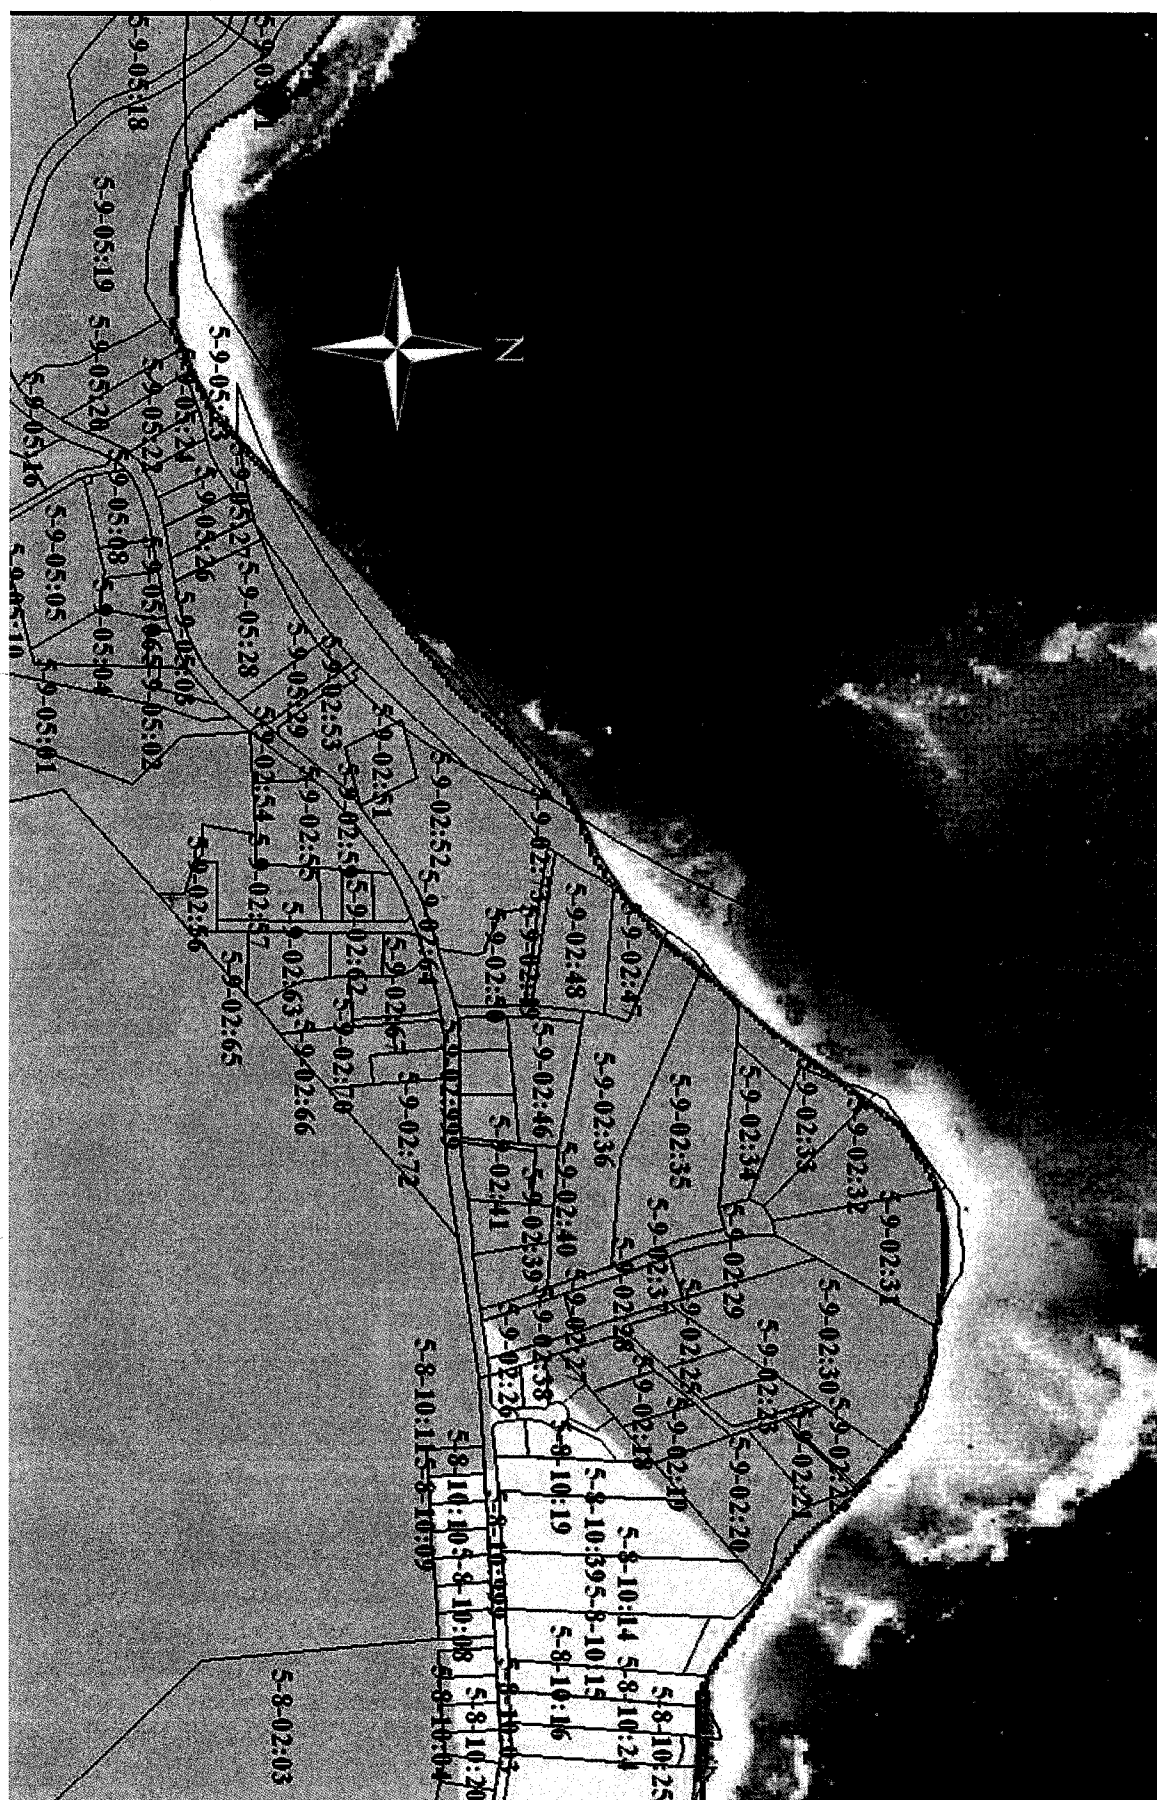 5-9-05:18
5-9-05:19
N
5-9-05:23
5-9-05:20
5-9-05:24
5-9-05:22
5-9-05:16
5-9-05:27
5-9-05:26
5-9-05:08
5-9-05:05
5-9-05:28
5-9-05:04
5-9-05:02
5-9-05:01
5-9-05:29
5-9-02:53
5-9-02:51
5-9-02:52
5-9-02:54
5-9-02:55
5-9-02:59
5-9-02:57
5-9-02:56
5-9-02:48
5-9-02:47
5-9-02:64
5-9-02:50
5-9-02:62
5-9-02:63
5-9-02:67
5-9-02:65
5-9-02:66
5-9-02:70
5-9-02:72
5-9-02:46
5-9-02:36
5-9-02:35
5-9-02:34
5-9-02:33
5-9-02:32
5-9-02:31
5-9-02:41
5-9-02:40
5-9-02:39
5-9-02:37
5-9-02:29
5-9-02:28
5-9-02:27
5-9-02:38
5-9-02:26
5-9-02:25
5-9-02:30
5-9-02:23
5-9-02:22
5-9-02:21
5-9-02:20
5-9-02:19
5-9-02:18
5-8-10:11
5-8-10:10
5-8-10:09
5-8-10:19
5-8-10:39
5-8-10:14
5-8-10:15
5-8-10:16
5-8-10:08
5-8-10:24
5-8-10:25
5-8-10:03
5-8-10:20
5-8-10:04
5-8-02:03